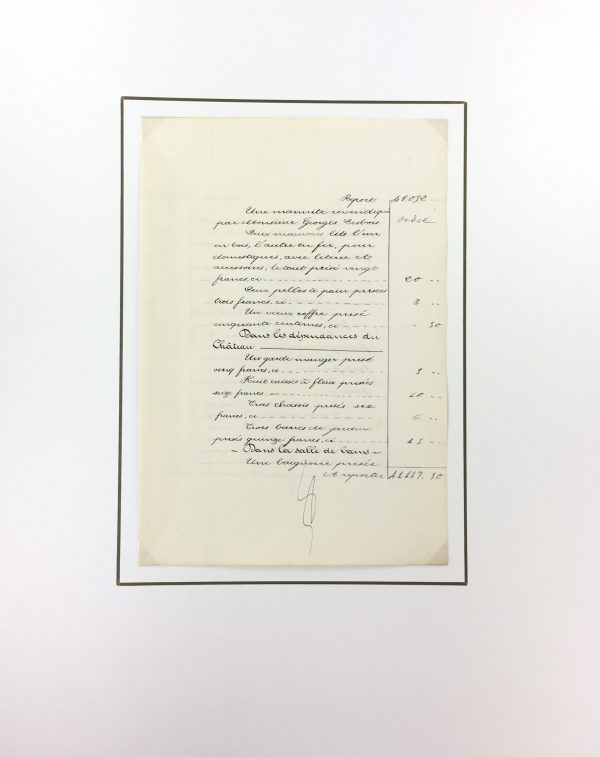 Report 41.072 --
Une marmite revendiquée
par Monsieur Georges Lesbois ordre
Deux mauvais lits l'un
en bois, l'autre en fer, pour
domestiques, avec literie et
accessoires, le tout prisé vingt
francs, ci 20 --
Deux pelles à pain prisées
trois francs, ci 3 --
Un vieux coffre prisé
cinquante centimes, ci - 50
Dans les dépendances du
Château
Un garde manger prisé
cinq francs, ci 5 --
Huit caisses à fleurs prisées
seize francs, ci
Trois chassis prisés six
francs, ci 6 --
Trois bancs de jardin
prisés quinze francs, ci 15 --
- Dans la salle de bains -
Une baignoire prisée
A reporter 41.117. 50